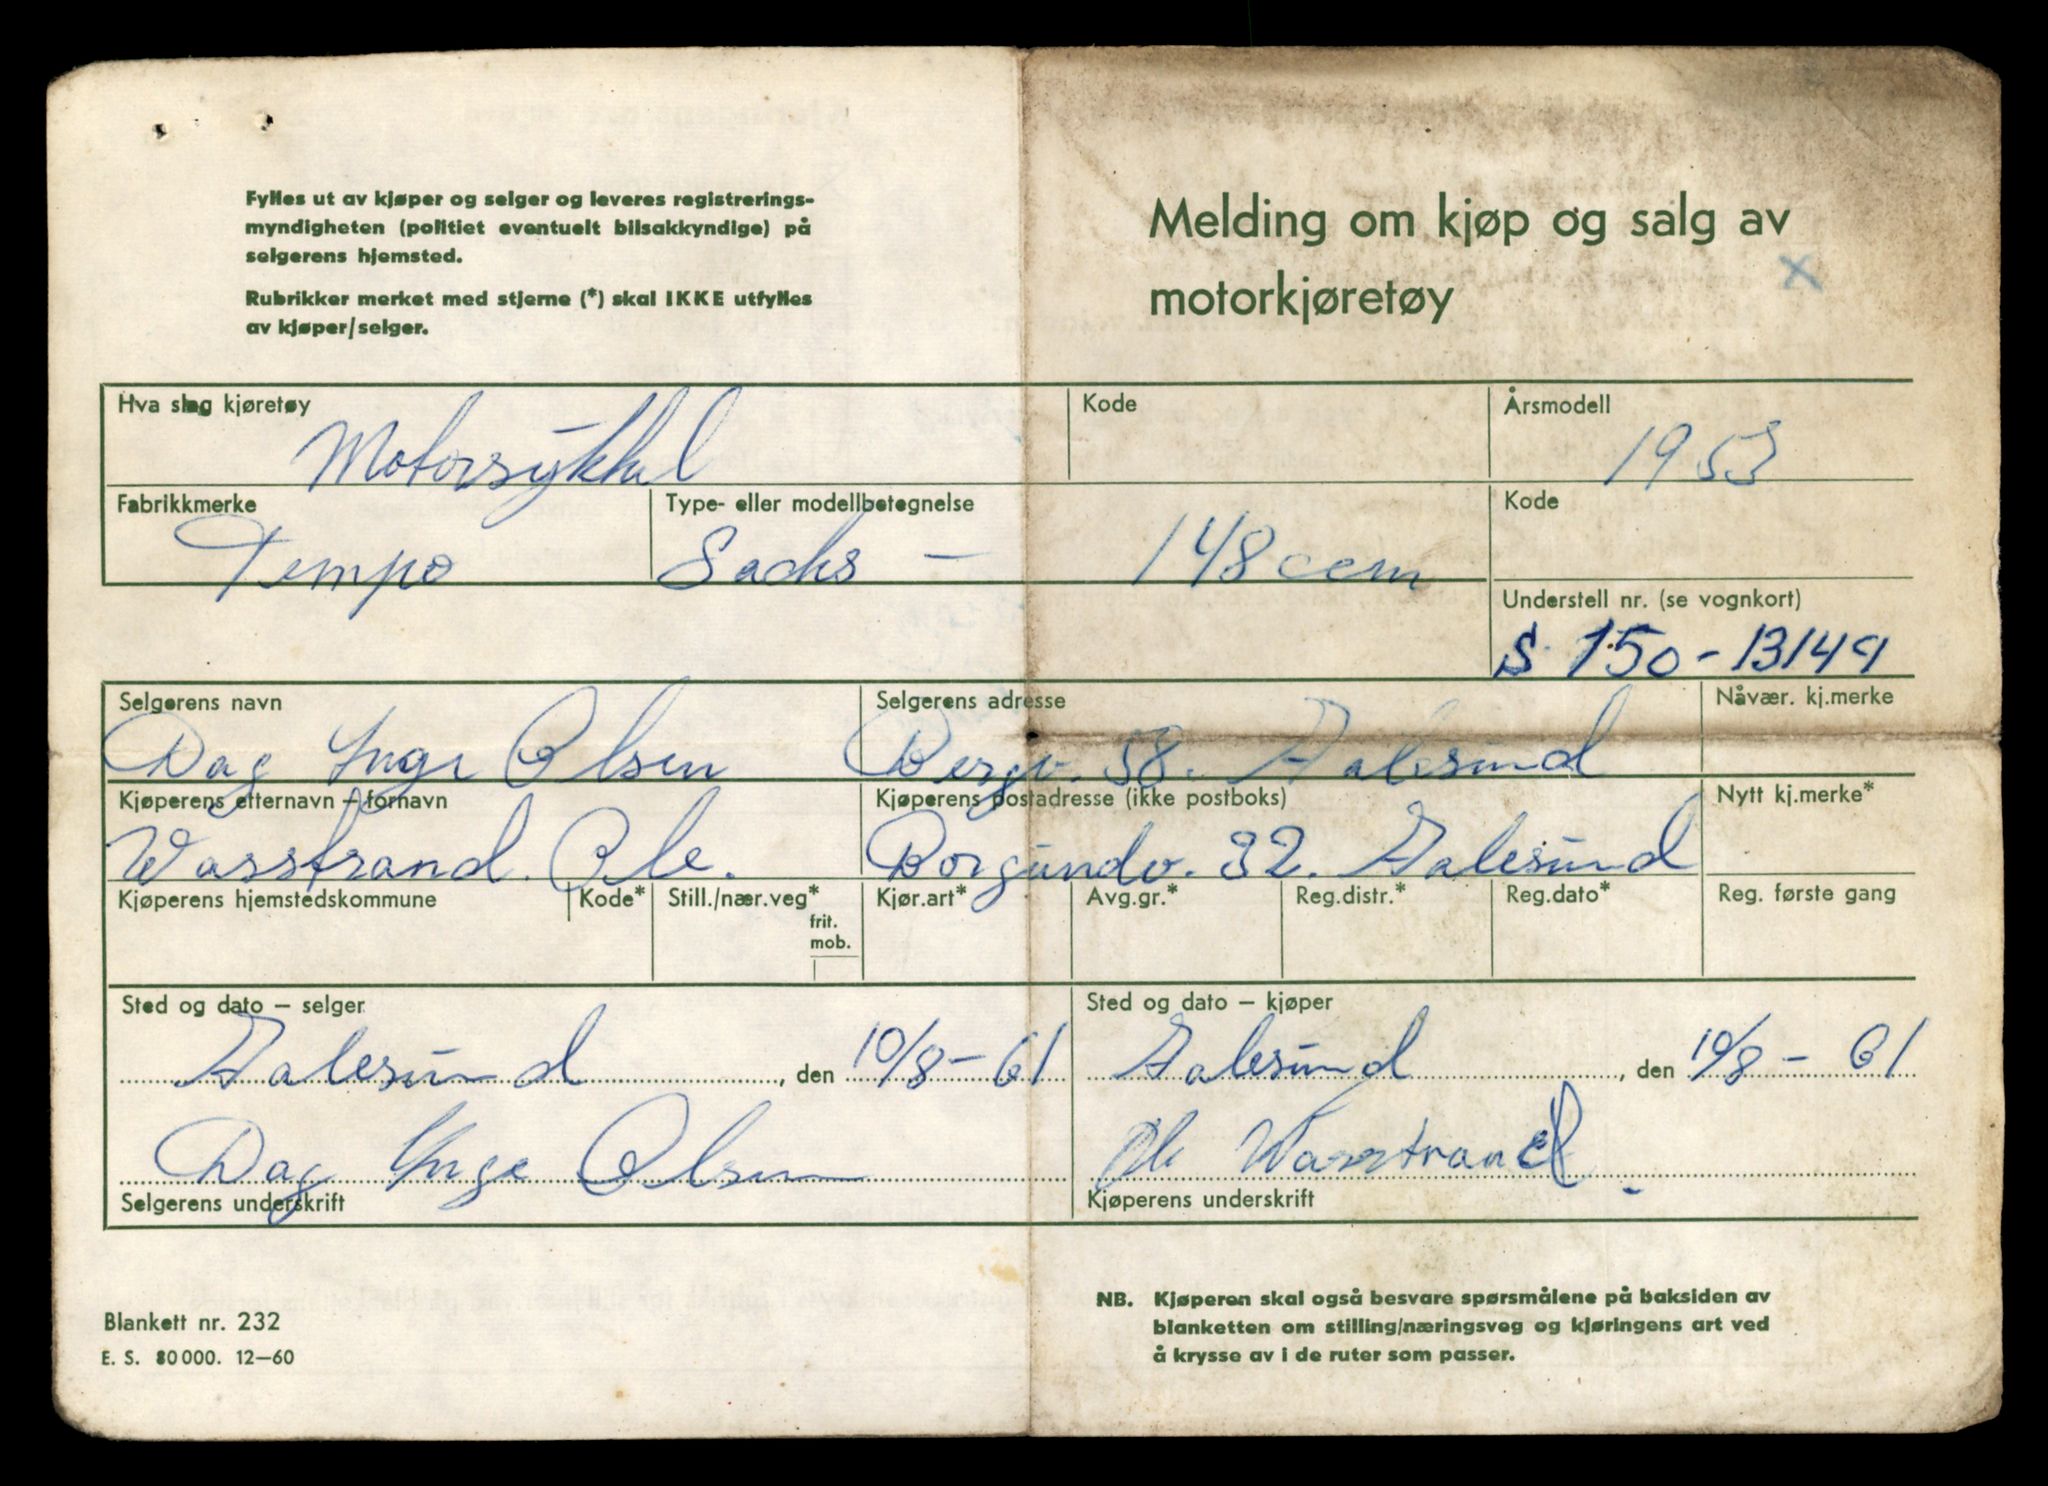 Fylles ut av kjøper og selger og leveres registrerings-
myndigheten (politiet eventuelt bilsakkyndige) på
selgerens hjemsted.
Rubrikker merket med stjerne (*) skal IKKE utfylles
av kjøper/selger.
Melding om kjøp og salg av
motorkjøretøy
x
Hva slag kjøretøy Kode Årsmodell
Motorsykkel 1953
Fabrikkmerke Type- eller modellbetegnelse Kode
Tempo Sachs - 148 ccm
Understell nr. (se vognkort)
S 150-13149
Selgerens navn Selgerens adresse Nåvær. kj.merke
Dag Inge Olsen Bergv. 58. Aalesund
Kjøperens etternavn – fornavn Kjøperens postadresse (ikke postboks) Nytt kj.merke*
Wasstrand. Ole. Borgundv. 32. Aalesund
Kjøperens hjemstedskommune Kode* Still./nær.veg* Kjør.art* Avg.gr.* Reg.distr.* Reg.dato* Reg. første gang
frit.
mob.
Sted og dato – selger Sted og dato – kjøper
Aalesund, den 10/8-61 Aalesund, den 10/8-61
Dag Inge Olsen Ole Wasstrand
Selgerens underskrift Kjøperens underskrift
Blankett nr. 232
E. S. 80 000. 12—60
NB. Kjøperen skal også besvare spørsmålene på baksiden av
blanketten om stilling/næringsveg og kjøringens art ved
å krysse av i de ruter som passer.